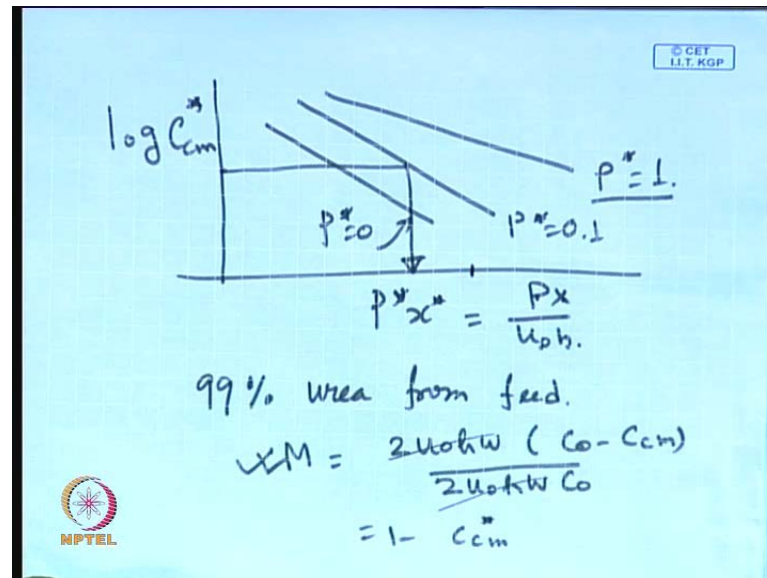 © CET
I.I.T. KGP
log C*cm
P*=1.
P*=0
P*=0.1
P*x* = Px / u₀h.
99% urea from feed.
XM = 2u₀hW (C₀ - Ccm) / 2u₀hW C₀
= 1 - C*cm
NPTEL